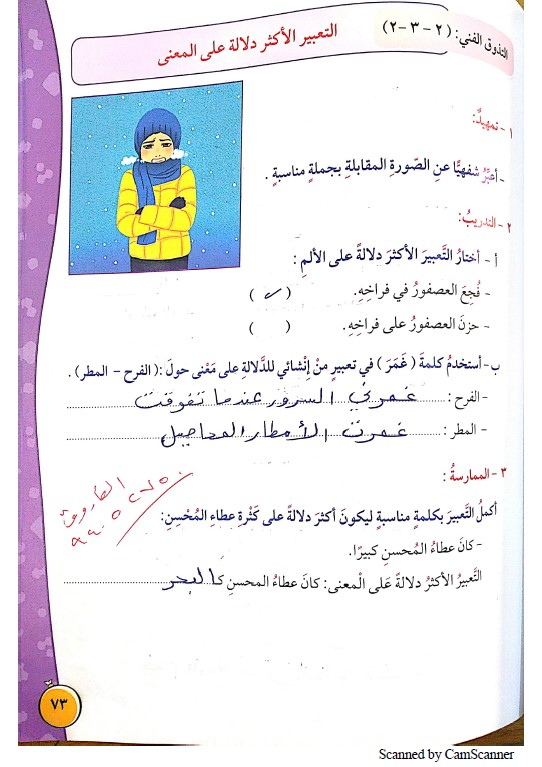 التذوق الفني: (٢ - ٣ - ٢)
التعبير الأكثر دلالة على المعنى
١ - تمهيدٌ:
- أعبّرُ شفهيًّا عنِ الصّورةِ المقابلةِ بجملةٍ مناسبةٍ .
٢ - التدريبُ:
أ - أختارُ التَّعبيرَ الأكثرَ دلالةً على الألمِ :
- فُجِعَ العصفورُ في فراخِهِ. ( ✓ )
- حزنَ العصفورُ على فراخِهِ. ( )
ب- أستخدمُ كلمةَ ( غَمَرَ ) في تعبيرٍ منْ إنْشائي للدَّلالةِ على مَعْنى حولَ :( الفرح - المطر ) .
- الفرح : غمرني السرور عندما تفوقت
- المطر : غمرت الأمطار المحاصيل
٣ - الممارسةُ :
أكملُ التَّعبيرَ بكلمةٍ مناسبةٍ ليكونَ أكثرَ دلالةً على كَثْرةِ عطاءِ المُحْسِنِ:
- كانَ عطاءُ المُحسنِ كبيرًا.
التَّعبيرُ الأكثرُ دلالةً عَلى الْمعنى: كانَ عطاءُ المحسنِ كـالبحر
٧٣
Scanned by CamScanner